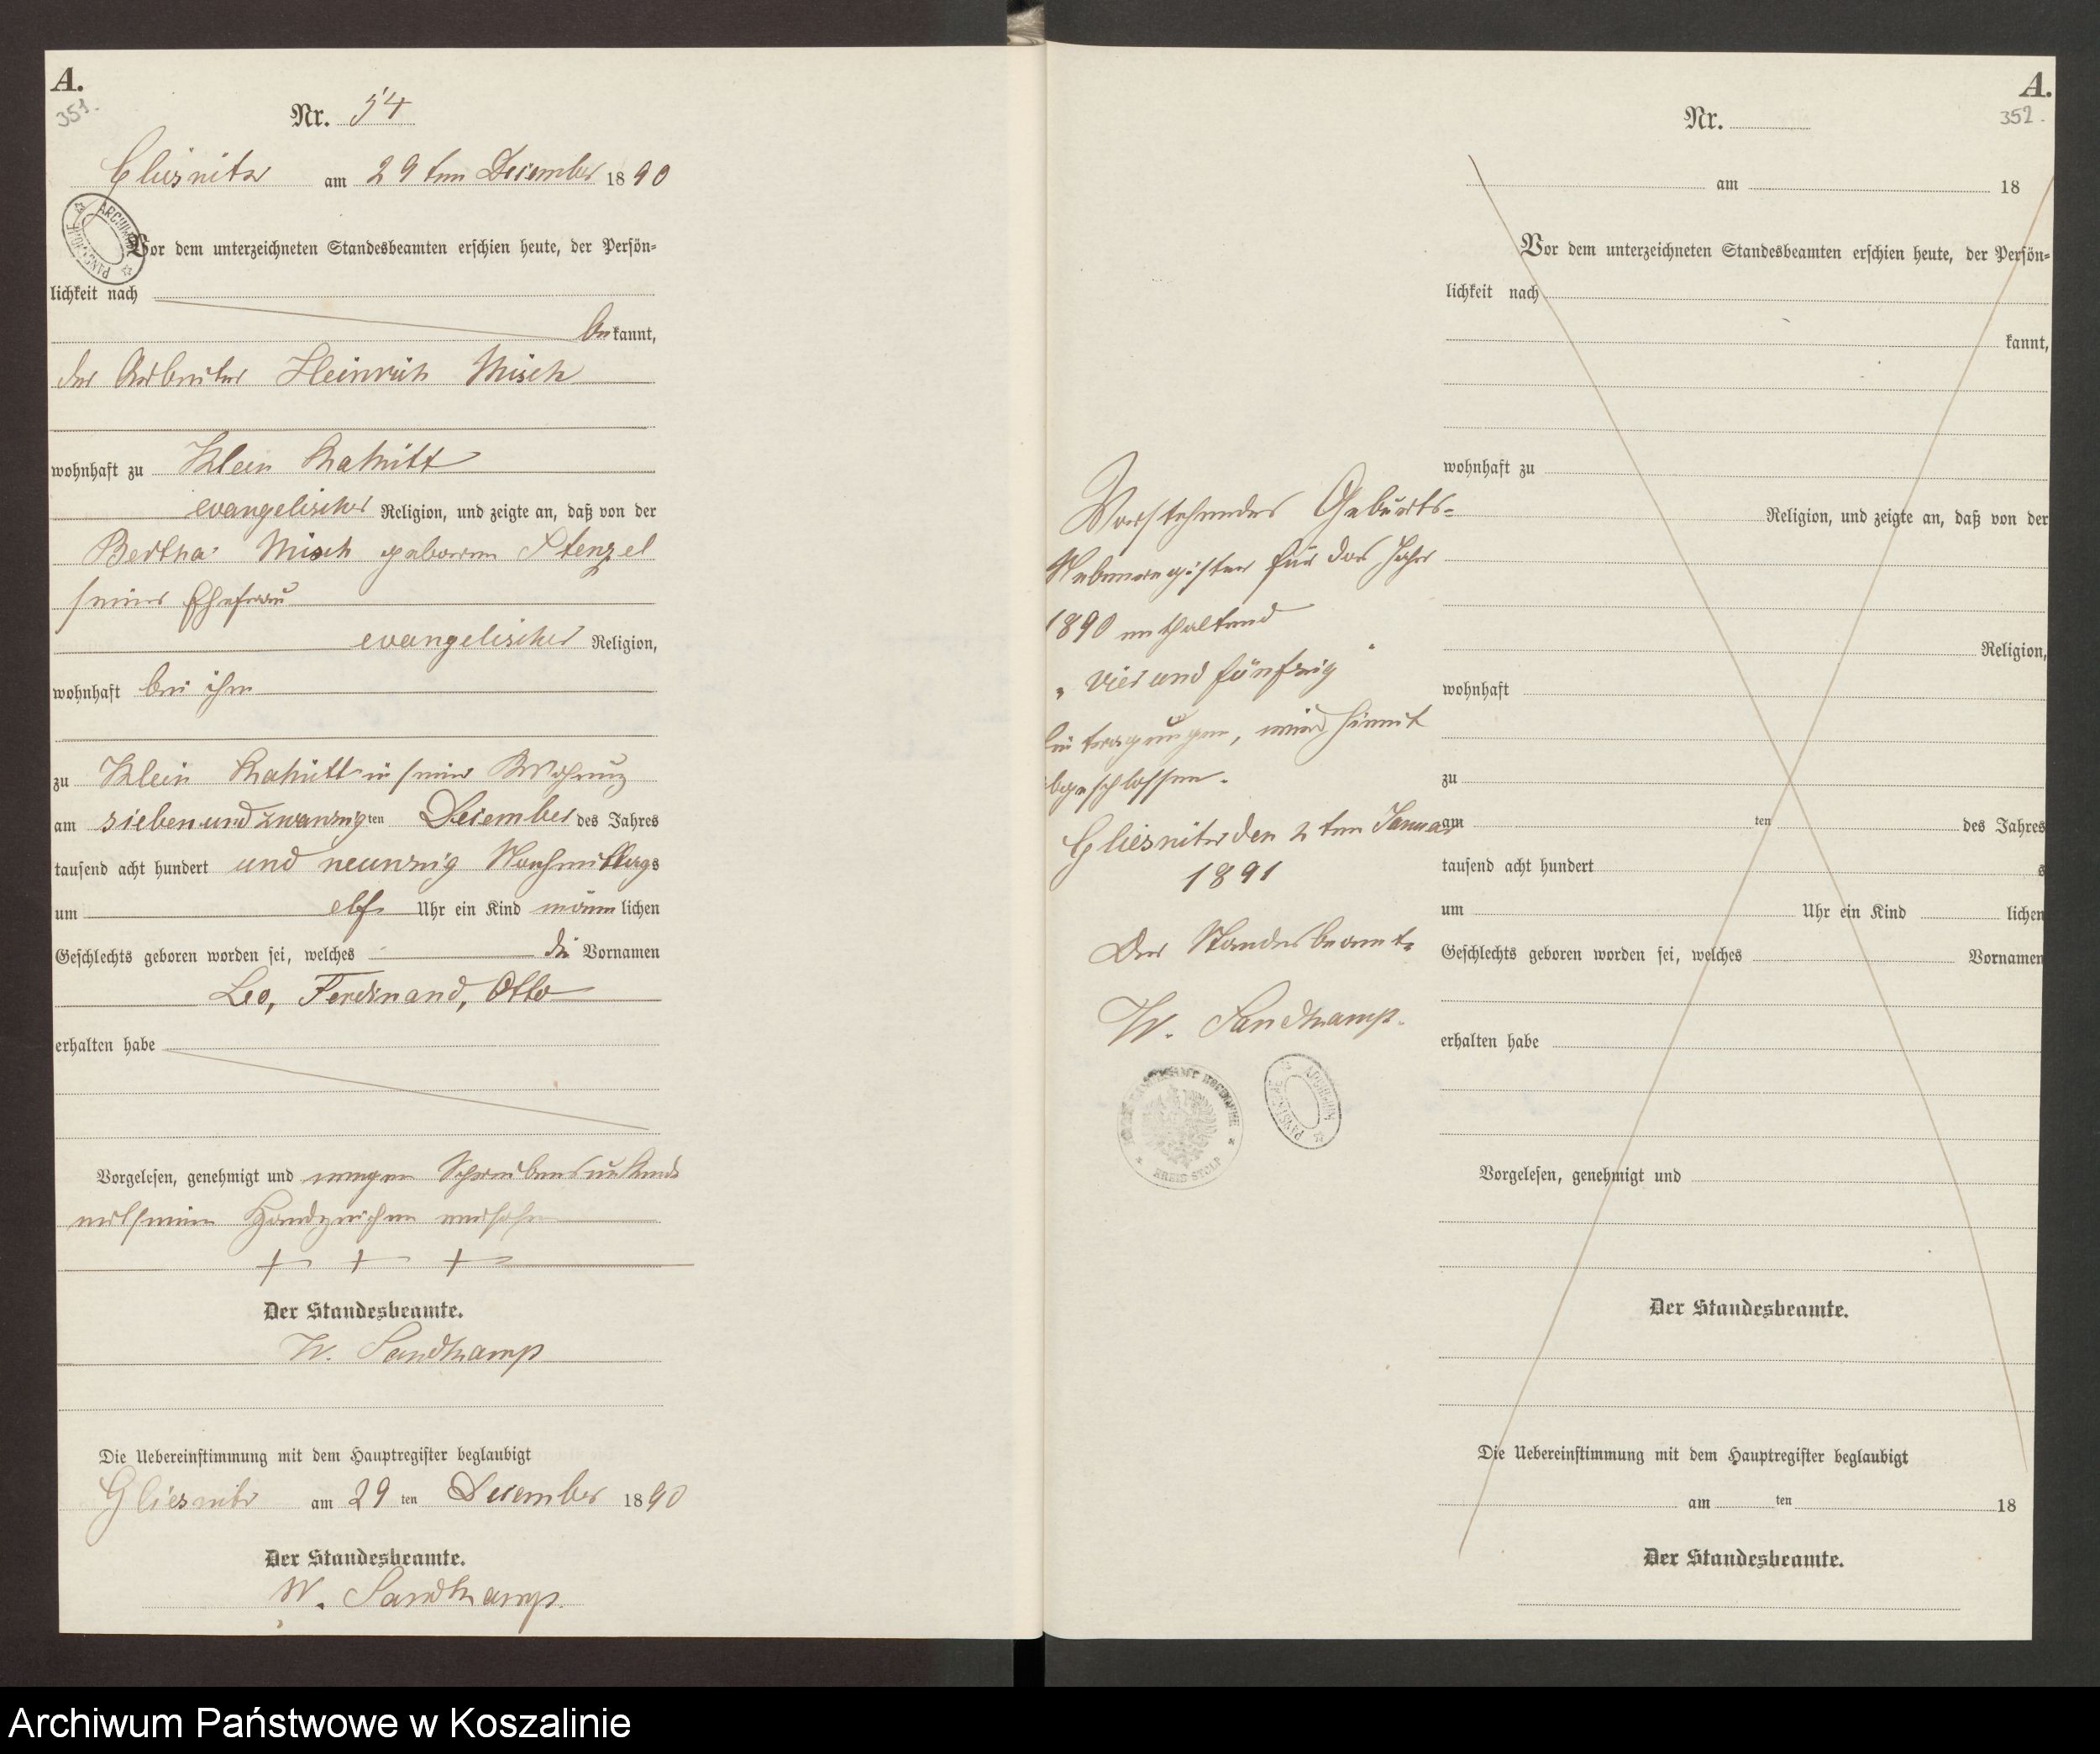 A.
351.
Nr. 54
Gliesnitz am 29ten Dezember 1890
Vor dem unterzeichneten Standesbeamten erschien heute, der Persön-
lichkeit nach
bekannt,
der Arbeiter Heinrich Misch
wohnhaft zu Klein
evangelischer Religion, und zeigte an, daß von der
Bertha Misch geborene Stenzel
seiner Ehefrau
evangelischer Religion,
wohnhaft bei ihm
zu Klein in seiner Wohnung
am siebenundzwanzigten Dezember des Jahres
tausend acht hundert und neunzig Nachmittags
um elf Uhr ein Kind männlichen
Geschlechts geboren worden sei, welches die Vornamen
Leo, Ferdinand, Otto
erhalten habe
Vorgelesen, genehmigt und wegen Schreibensunkunde
mit seinem Handzeichen versehen
+ + +
Der Standesbeamte.
W. Sandkamp
Die Uebereinstimmung mit dem Hauptregister beglaubigt
Gliesnitz am 29ten Dezember 1890
Der Standesbeamte.
W. Sandkamp.
Vorstehendes Geburts-
Nebenregister für das Jahr
1890 enthaltend
„ vier und fünfzig "
Eintragungen, wird hiermit
abgeschlossen.
Gliesnitz den 2ten Januar
1891
Der Standesbeamte
W. Sandkamp.
KREIS STOLP
A.
352.
Nr.
am 18
Vor dem unterzeichneten Standesbeamten erschien heute, der Persön-
lichkeit nach
kannt,
wohnhaft zu
Religion, und zeigte an, daß von der
Religion,
wohnhaft
zu
am ten des Jahres
tausend acht hundert s
um Uhr ein Kind lichen
Geschlechts geboren worden sei, welches Vornamen
erhalten habe
Vorgelesen, genehmigt und
Der Standesbeamte.
Die Uebereinstimmung mit dem Hauptregister beglaubigt
am ten 18
Der Standesbeamte.
Archiwum Państwowe w Koszalinie